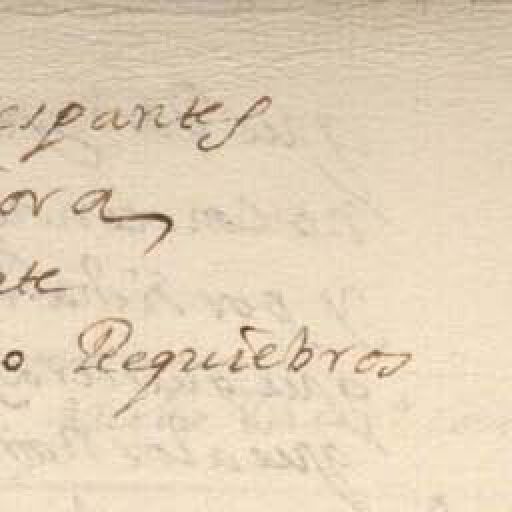 espantes
ora
ete
o Requiebros